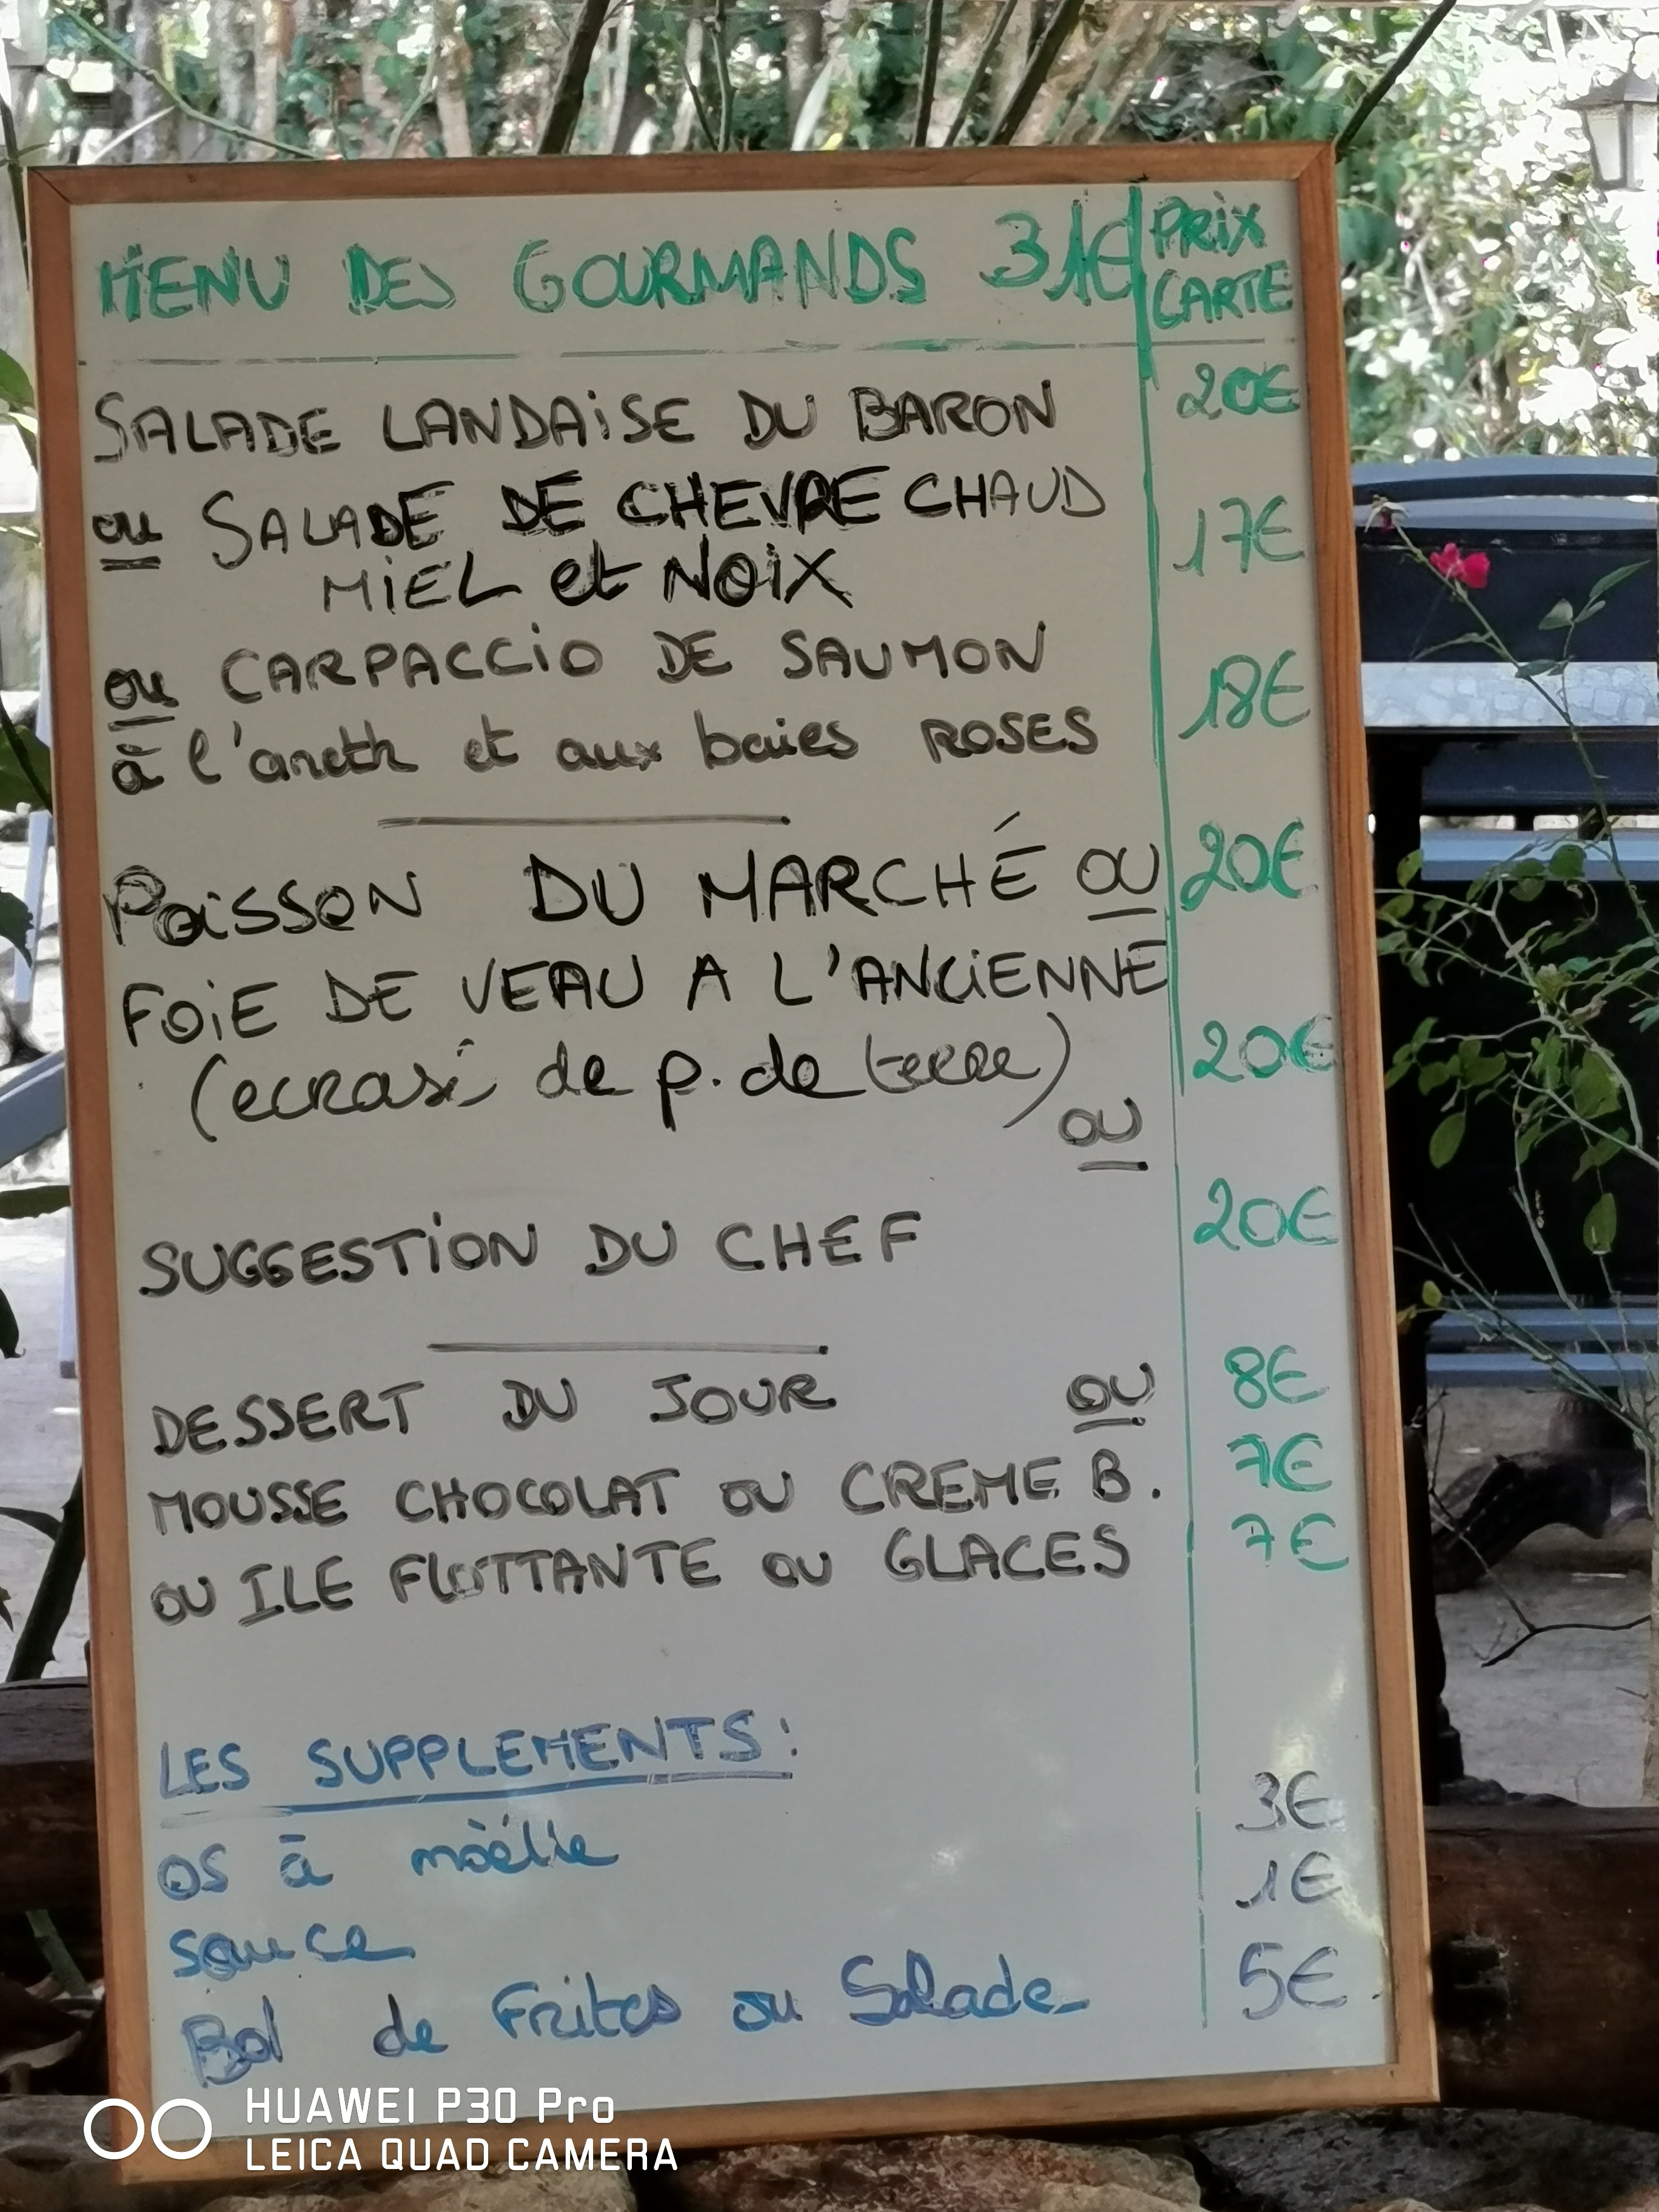 MENU DES GOURMANDS 31€ PRIX CARTE
SALADE LANDAISE DU BARON 20€
ou SALADE DE CHEVRE CHAUD
MIEL et NOIX 17€
ou CARPACCIO DE SAUMON
à l'aneth et aux baies ROSES 18€
POISSON DU MARCHÉ OU 20€
FOIE DE VEAU A L'ANCIENNE
(ecrasé de p. de terre) 20€
OU
SUGGESTION DU CHEF 20€
DESSERT DU JOUR OU 8€
MOUSSE CHOCOLAT OU CREME B. 7€
OU ILE FLOTTANTE OU GLACES 7€
LES SUPPLEMENTS:
OS à moëlle 3€
Sauce 1€
Bol de Frites ou Salade 5€
HUAWEI P30 Pro
LEICA QUAD CAMERA